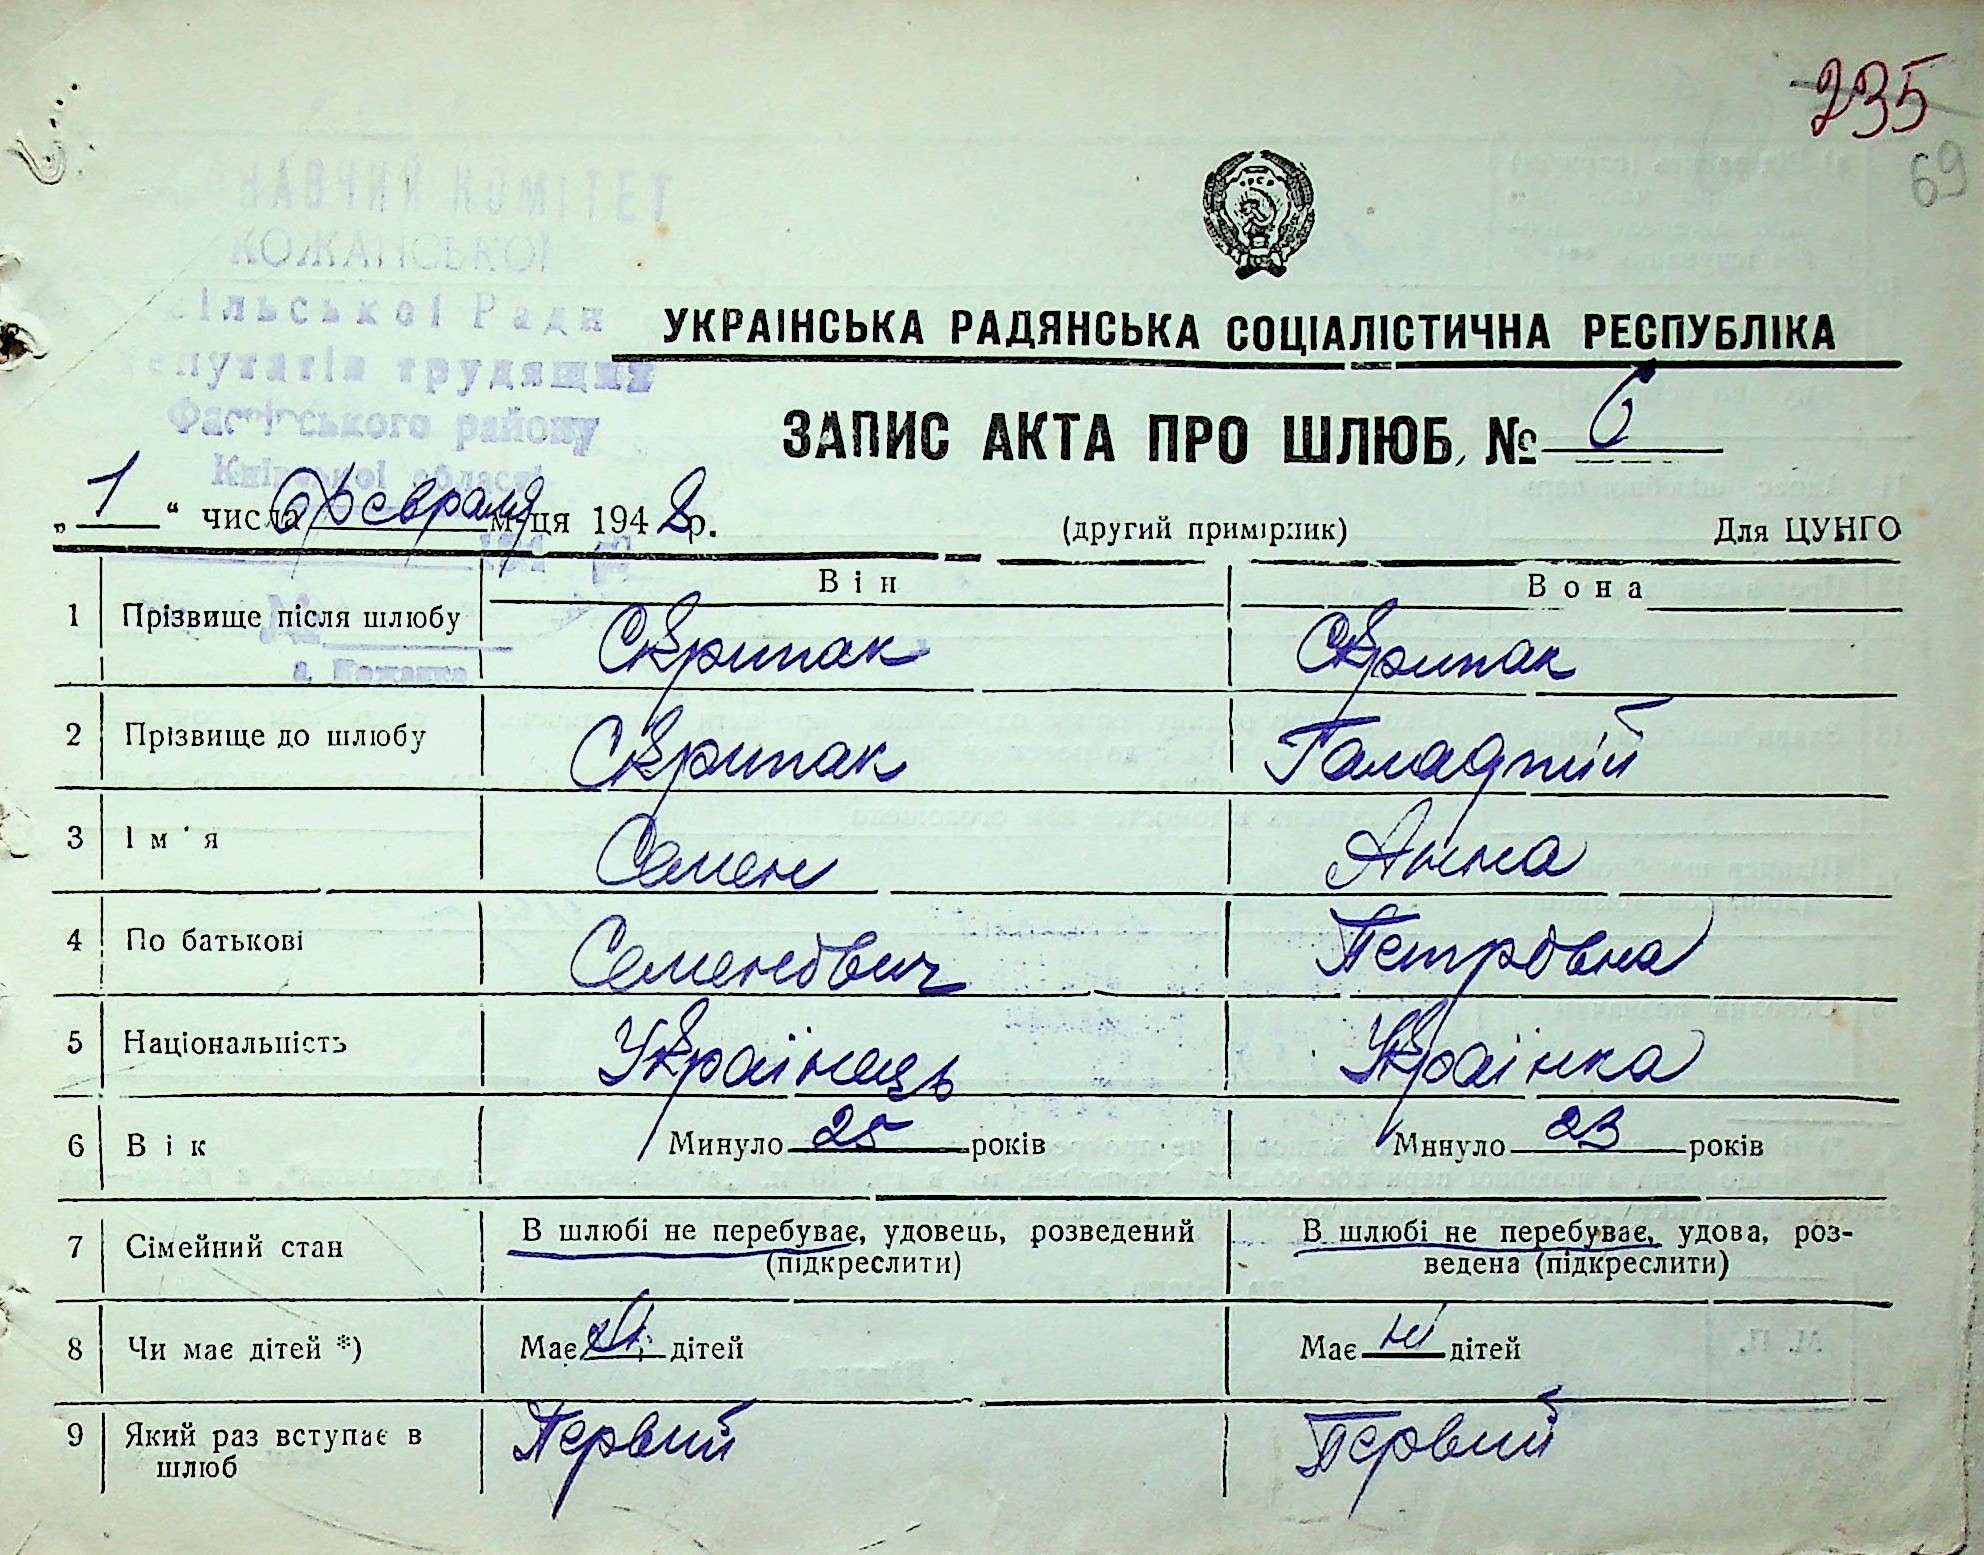 235
69
НАВЧИЙ КОМІТЕТ
КОЖАНСЬКОЇ
сільської Ради
депутатів трудящих
Фастівського району
Київської області
УКРАІНСЬКА РАДЯНСЬКА СОЦІАЛІСТИЧНА РЕСПУБЛІКА
ЗАПИС АКТА ПРО ШЛЮБ, № 6
„ 1 “ числа февраля м-ця 1948 р. (другий примірник) Для ЦУНГО
Він Вона
1 Прізвище після шлюбу Скрипак Скрипак
с. Кожанка
2 Прізвище до шлюбу Скрипак Галадтій
3 Ім'я Семен Анна
4 По батькові Семенович Петровна
5 Національність Українець Українка
6 Вік Минуло 25 років Минуло 23 років
7 Сімейний стан В шлюбі не перебуває, удовець, розведений В шлюбі не перебуває, удова, роз-
(підкреслити) ведена (підкреслити)
8 Чи має дітей *) Має дітей Має ні дітей
9 Який раз вступає в Первий Первий
шлюб